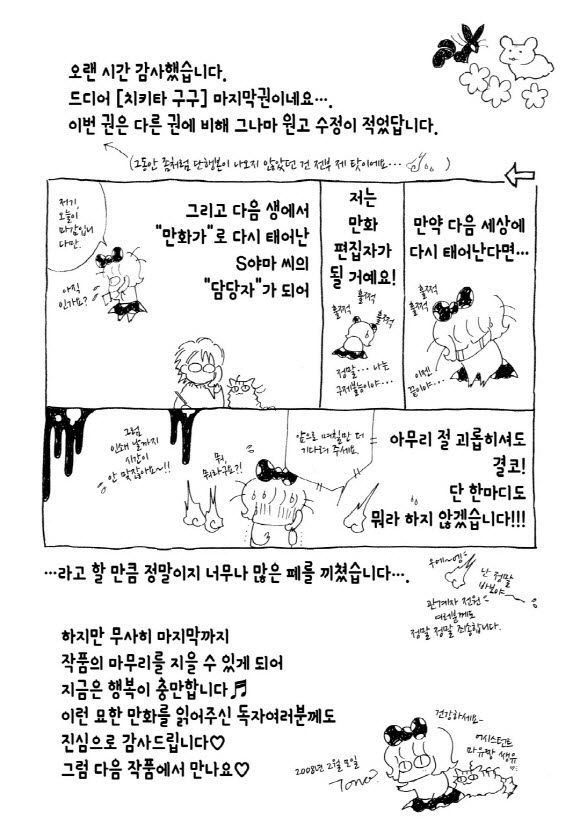 오랜 시간 감사했습니다.
드디어 [치키타 구구] 마지막권이네요….
이번 권은 다른 권에 비해 그나마 원고 수정이 적었답니다.
(그동안 좀처럼 단행본이 나오지 않았던 건 전부 제 탓이에요… )
만약 다음 세상에
다시 태어난다면…
훌쩍
훌쩍
훌쩍
이젠
끝이야…
저는
만화
편집자가
될 거예요!
훌쩍
훌쩍
훌쩍
정말… 나는
구제불능이야…
그리고 다음 생에서
"만화가"로 다시 태어난
S야마 씨의
"담당자"가 되어
저기,
오늘이
마감입니
다만.
아직
인가요?
아무리 절 괴롭히셔도
결코!
단 한마디도
뭐라 하지 않겠습니다!!!
앞으로 며칠만 더
기다려 주세요.
뭐,
뭐라구요?!
그럼
인쇄 날까지
시간이
안 맞잖아요~!!
…라고 할 만큼 정말이지 너무나 많은 폐를 끼쳤습니다….
우에~엥
난 정말
바보야~
관계자 전원
여러분께도
정말 정말 죄송합니다.
하지만 무사히 마지막까지
작품의 마무리를 지을 수 있게 되어
지금은 행복이 충만합니다♬
이런 묘한 만화를 읽어주신 독자여러분께도
진심으로 감사드립니다♡
그럼 다음 작품에서 만나요♡
건강하세요~
어시스턴트
2008년 2월 모일
Tono